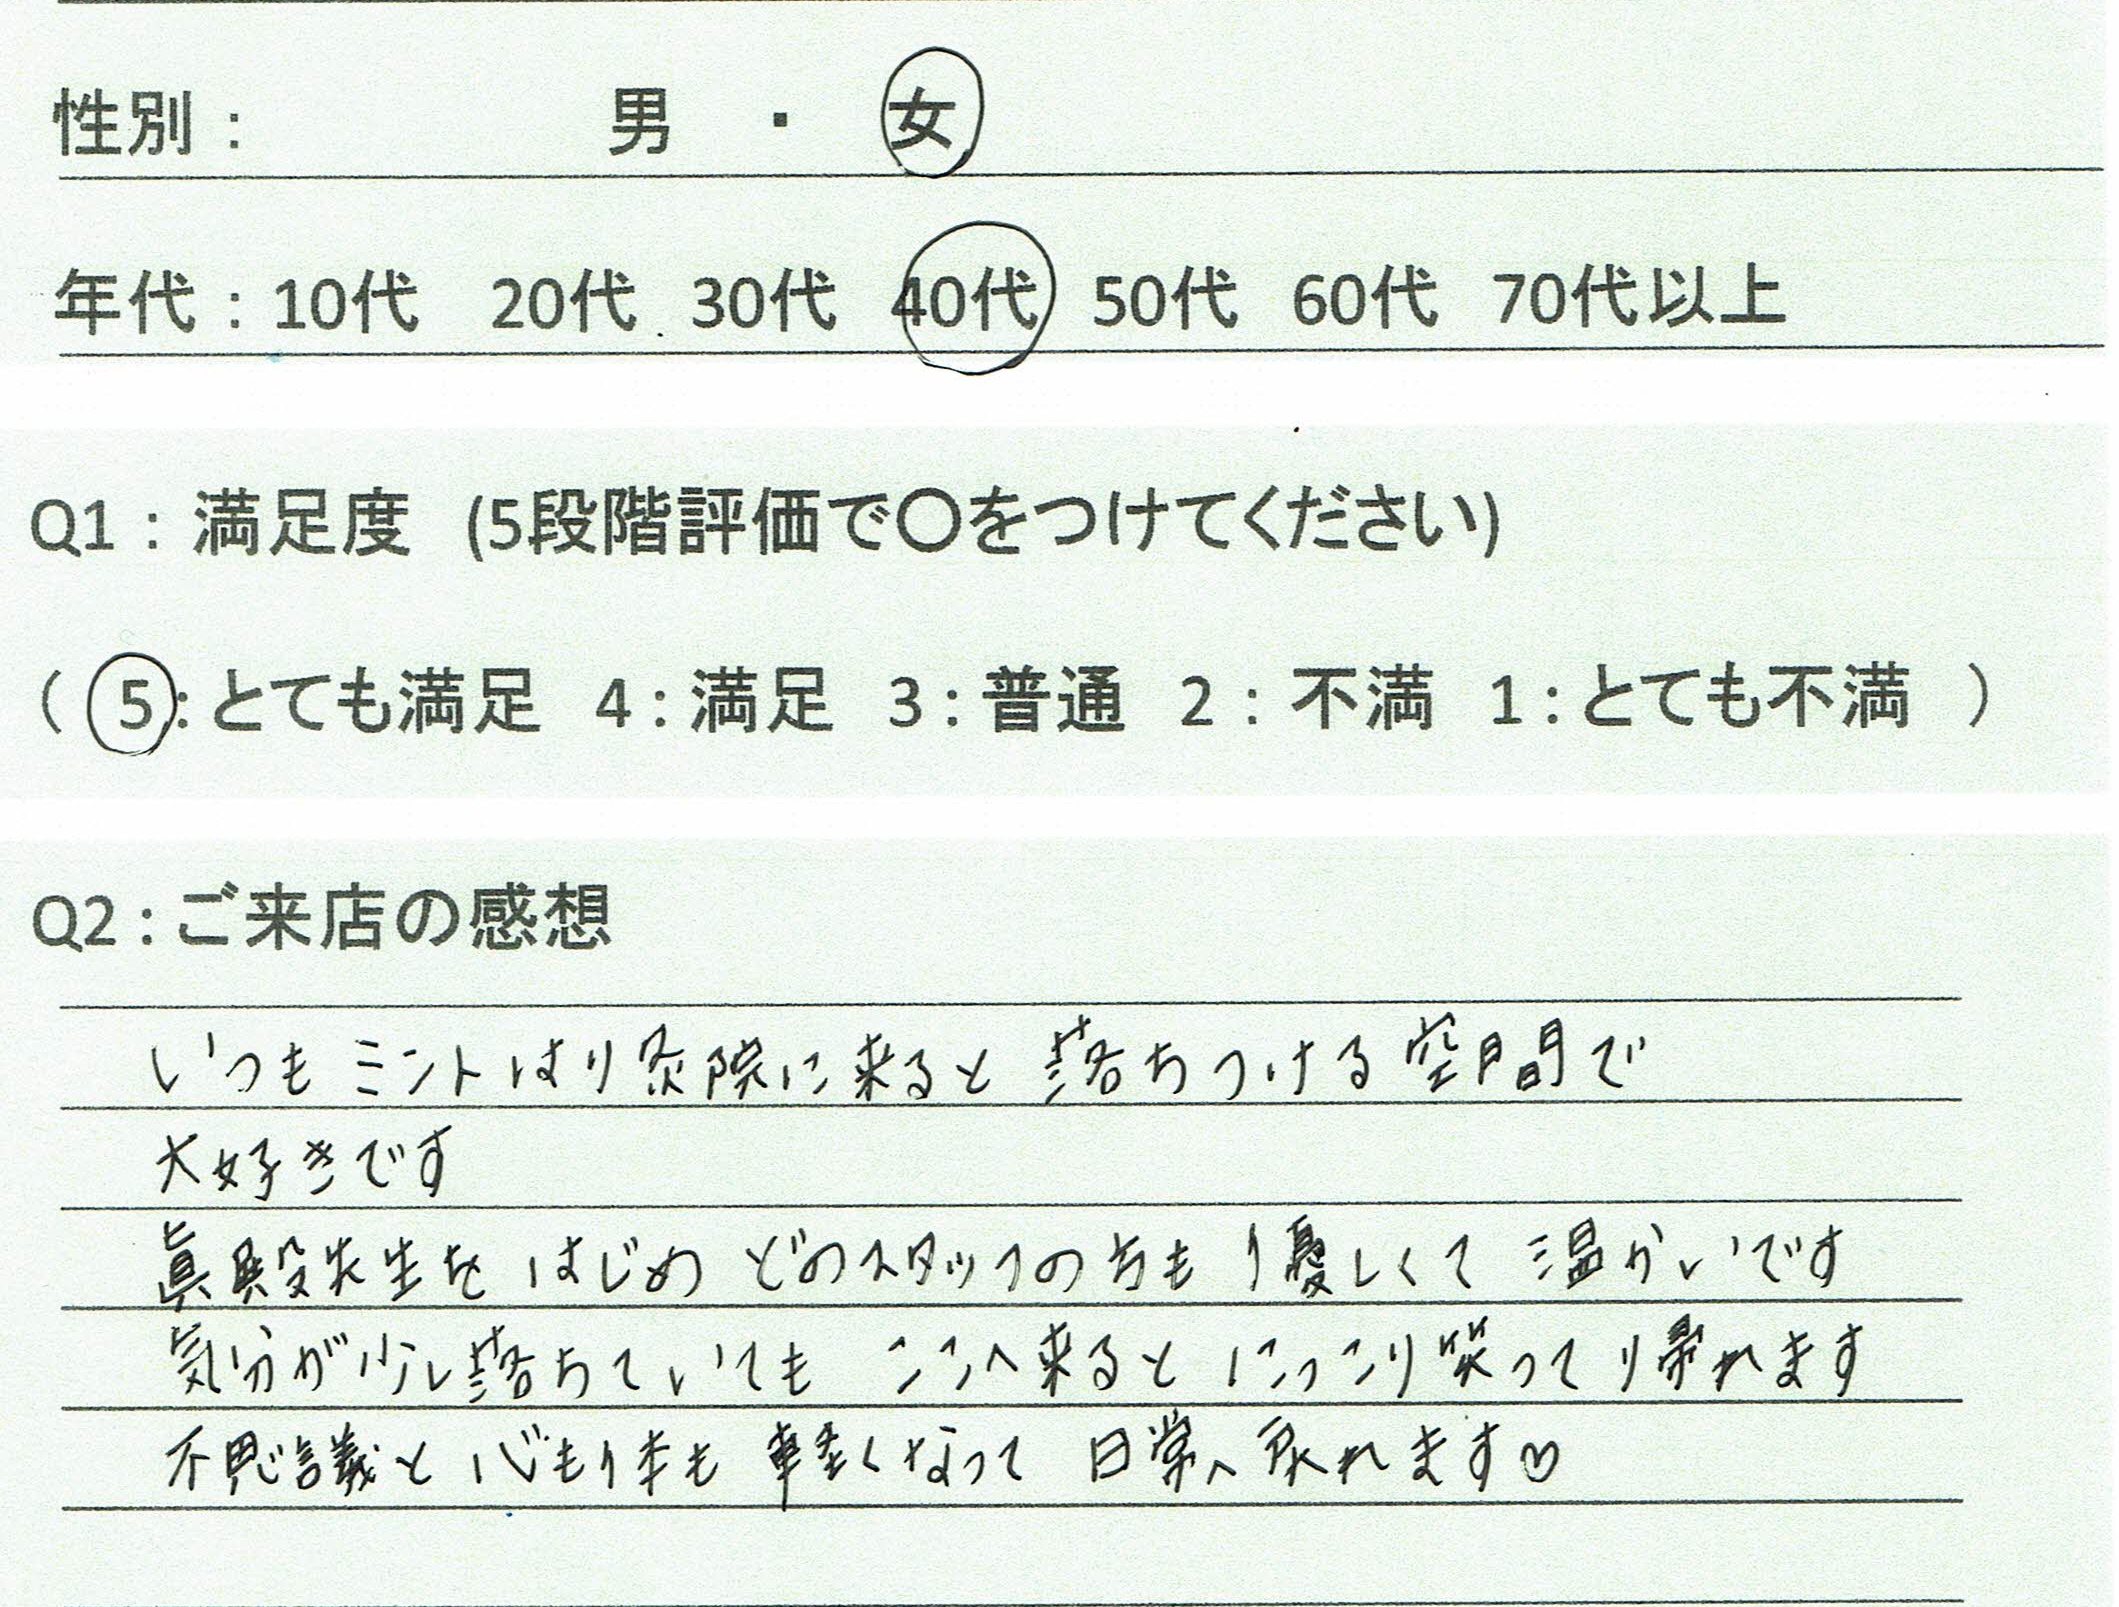 性別： 男 ・ 女
年代：10代 20代 30代 40代 50代 60代 70代以上
Q1：満足度 (5段階評価で〇をつけてください)
（ 5：とても満足 4：満足 3：普通 2：不満 1：とても不満 ）
Q2：ご来店の感想
いつも ミントはり灸院に来ると 落ちつける空間で
大好きです
眞殿先生を はじめ どのスタッフの方も 優しくて 温かいです
気分が少し落ちていても ここへ来ると にっこり笑って帰れます
不思議と 心も体も 軽くなって 日常へ 戻れます♡